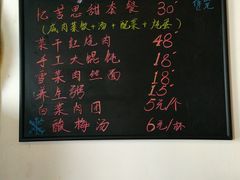 忆苦思甜套餐 30
(卤肉菜饭+汤+配菜+泡菜)
菜干红烧肉 48
手工大馄饨 18
雪菜肉丝面 18
养生粥 15
白菜肉团 5元/个
酸梅汤 6元/杯